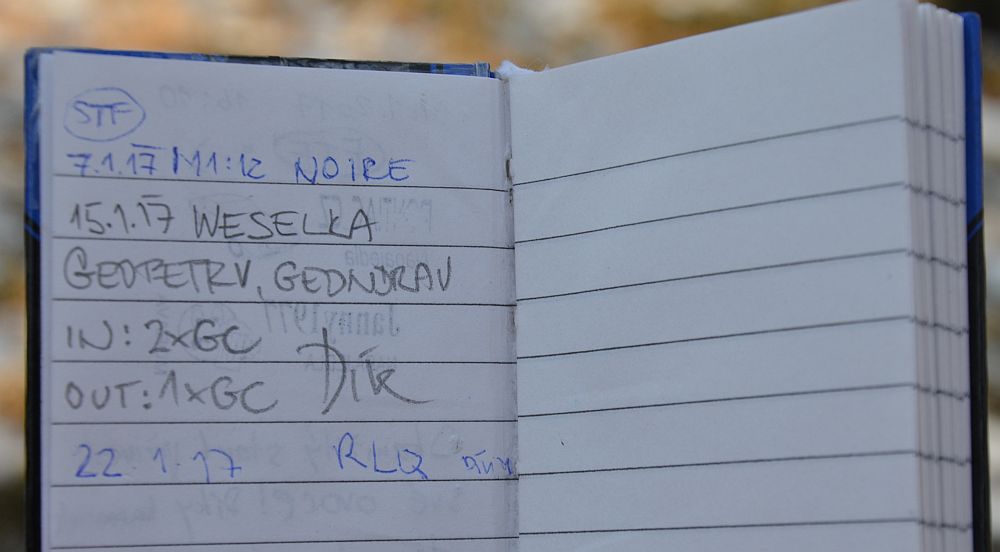 STF
7.1.17 M1:12 NOIRE
15.1.17 WESELKA
GEOPETRV, GEONDRAV
IN: 2xGC
OUT: 1xGC Dík
22.1.17 RLQ